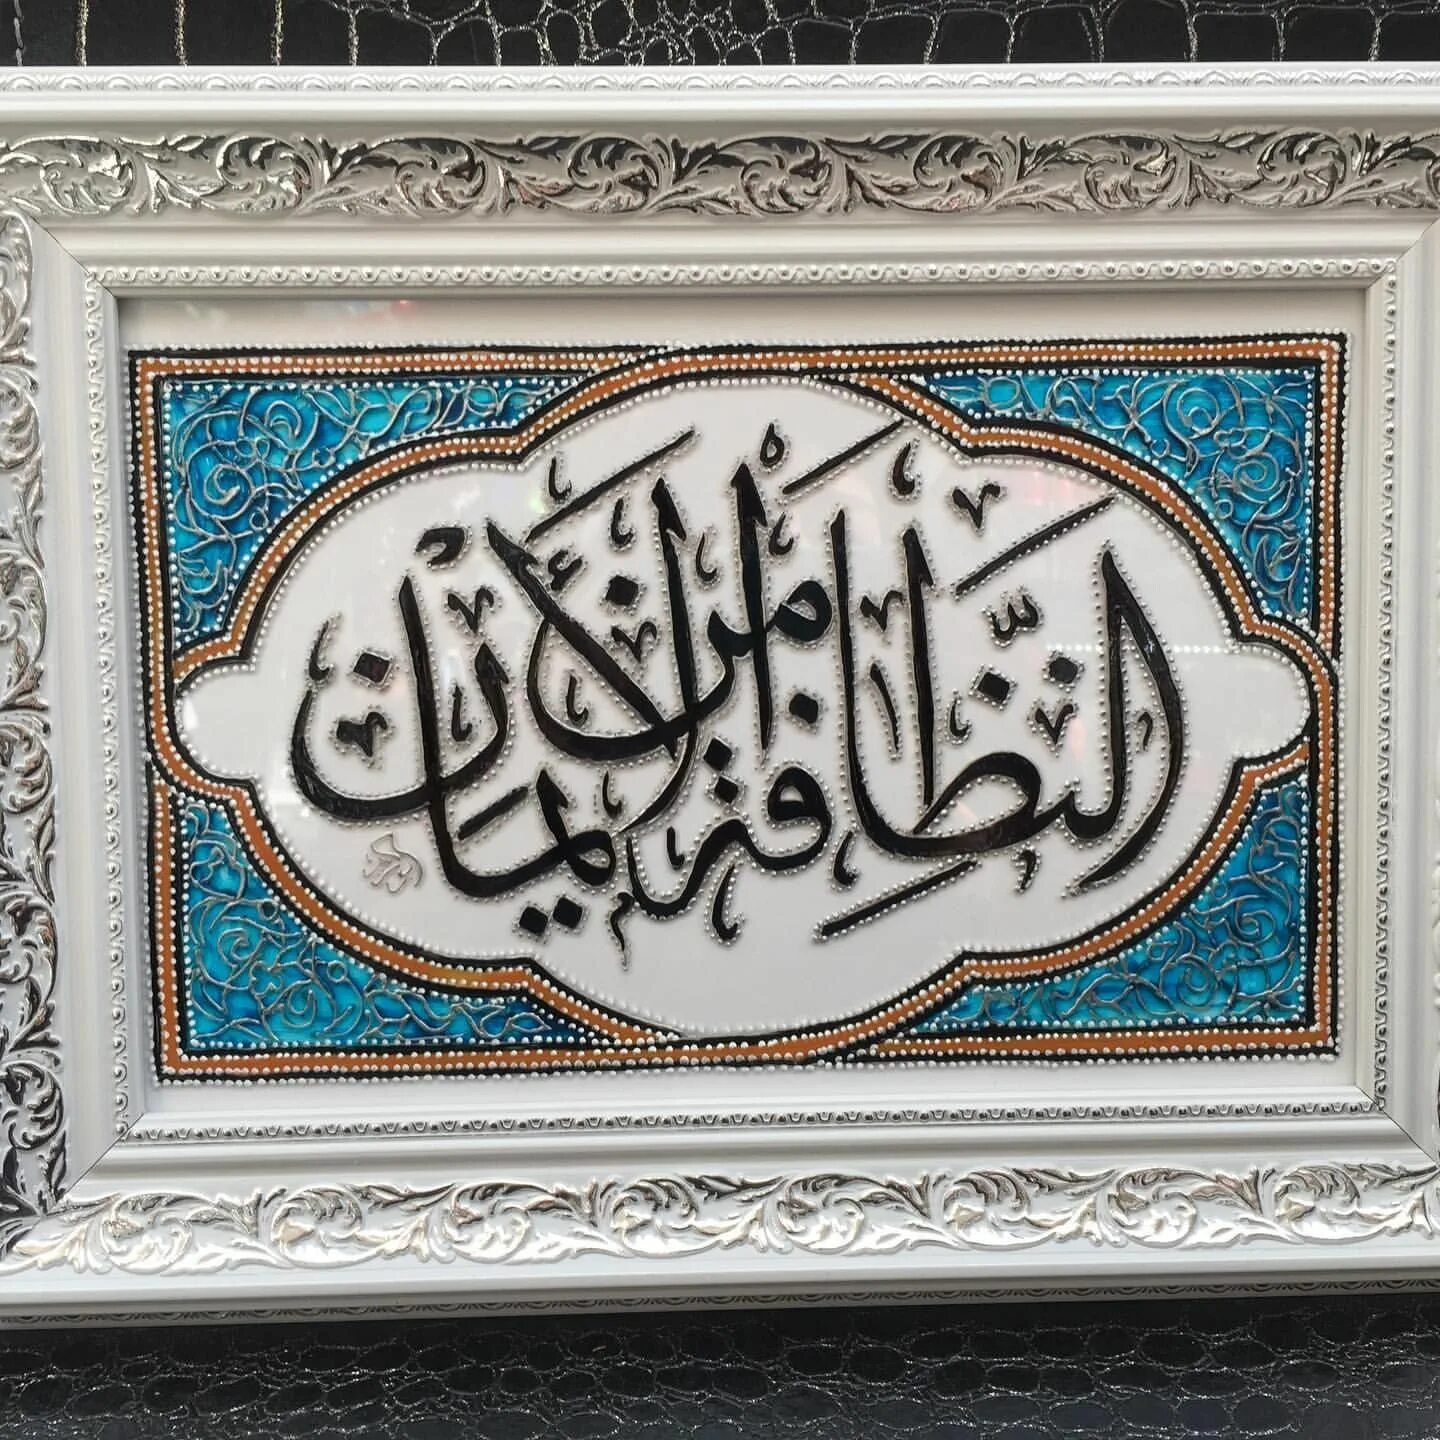 النَّظَافَةُ مِنَ الْأَيمَانِ